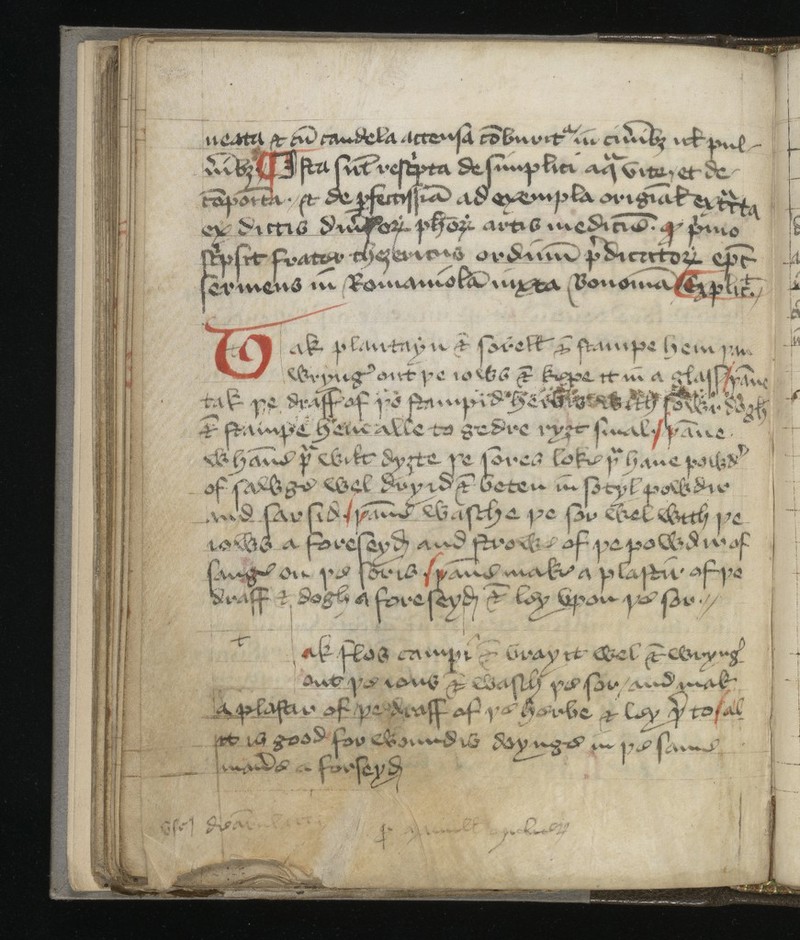 neata et cu candela accensa coburit in cineribz vel pul-
veribz Ista sunt rescripta de simplici aqua vite et de
composita · et de perfectissima ad exempla original extracta
ex dictis diversor phor artis medicine · q primo
scripsit frater thezericus ordinum predicator epc
sermens in Romaniola iuxta Bononia Explicit
Tak plantayn & sorell & stampe hem þan
wrynge out þe iows & kepe it in a glass / þane
tak þe draff of þe stampid herbis with sowr dogh
& stampe hem alle to gedre ryzt smal / þane
whane þu wilt dyzte þe sores loke þu haue powdr
of sawge wel dryid & beten in sotyl powdir
and sarsid / þane wasche þe sor wel with þe
iows a foreseyd and strowe of þe powdir of
sauge on þe soris / þane make a plastir of þe
draff & dogh a foreseyd & ley vpon þe sor //
t
ak flos campi & bray it wel & wrynge
out þe ious & wasch þe sor / and mak
a plastir of þe draff of þe herbe & ley þer to / al
it is good for woundis doynge in þe same
manere a forseyd